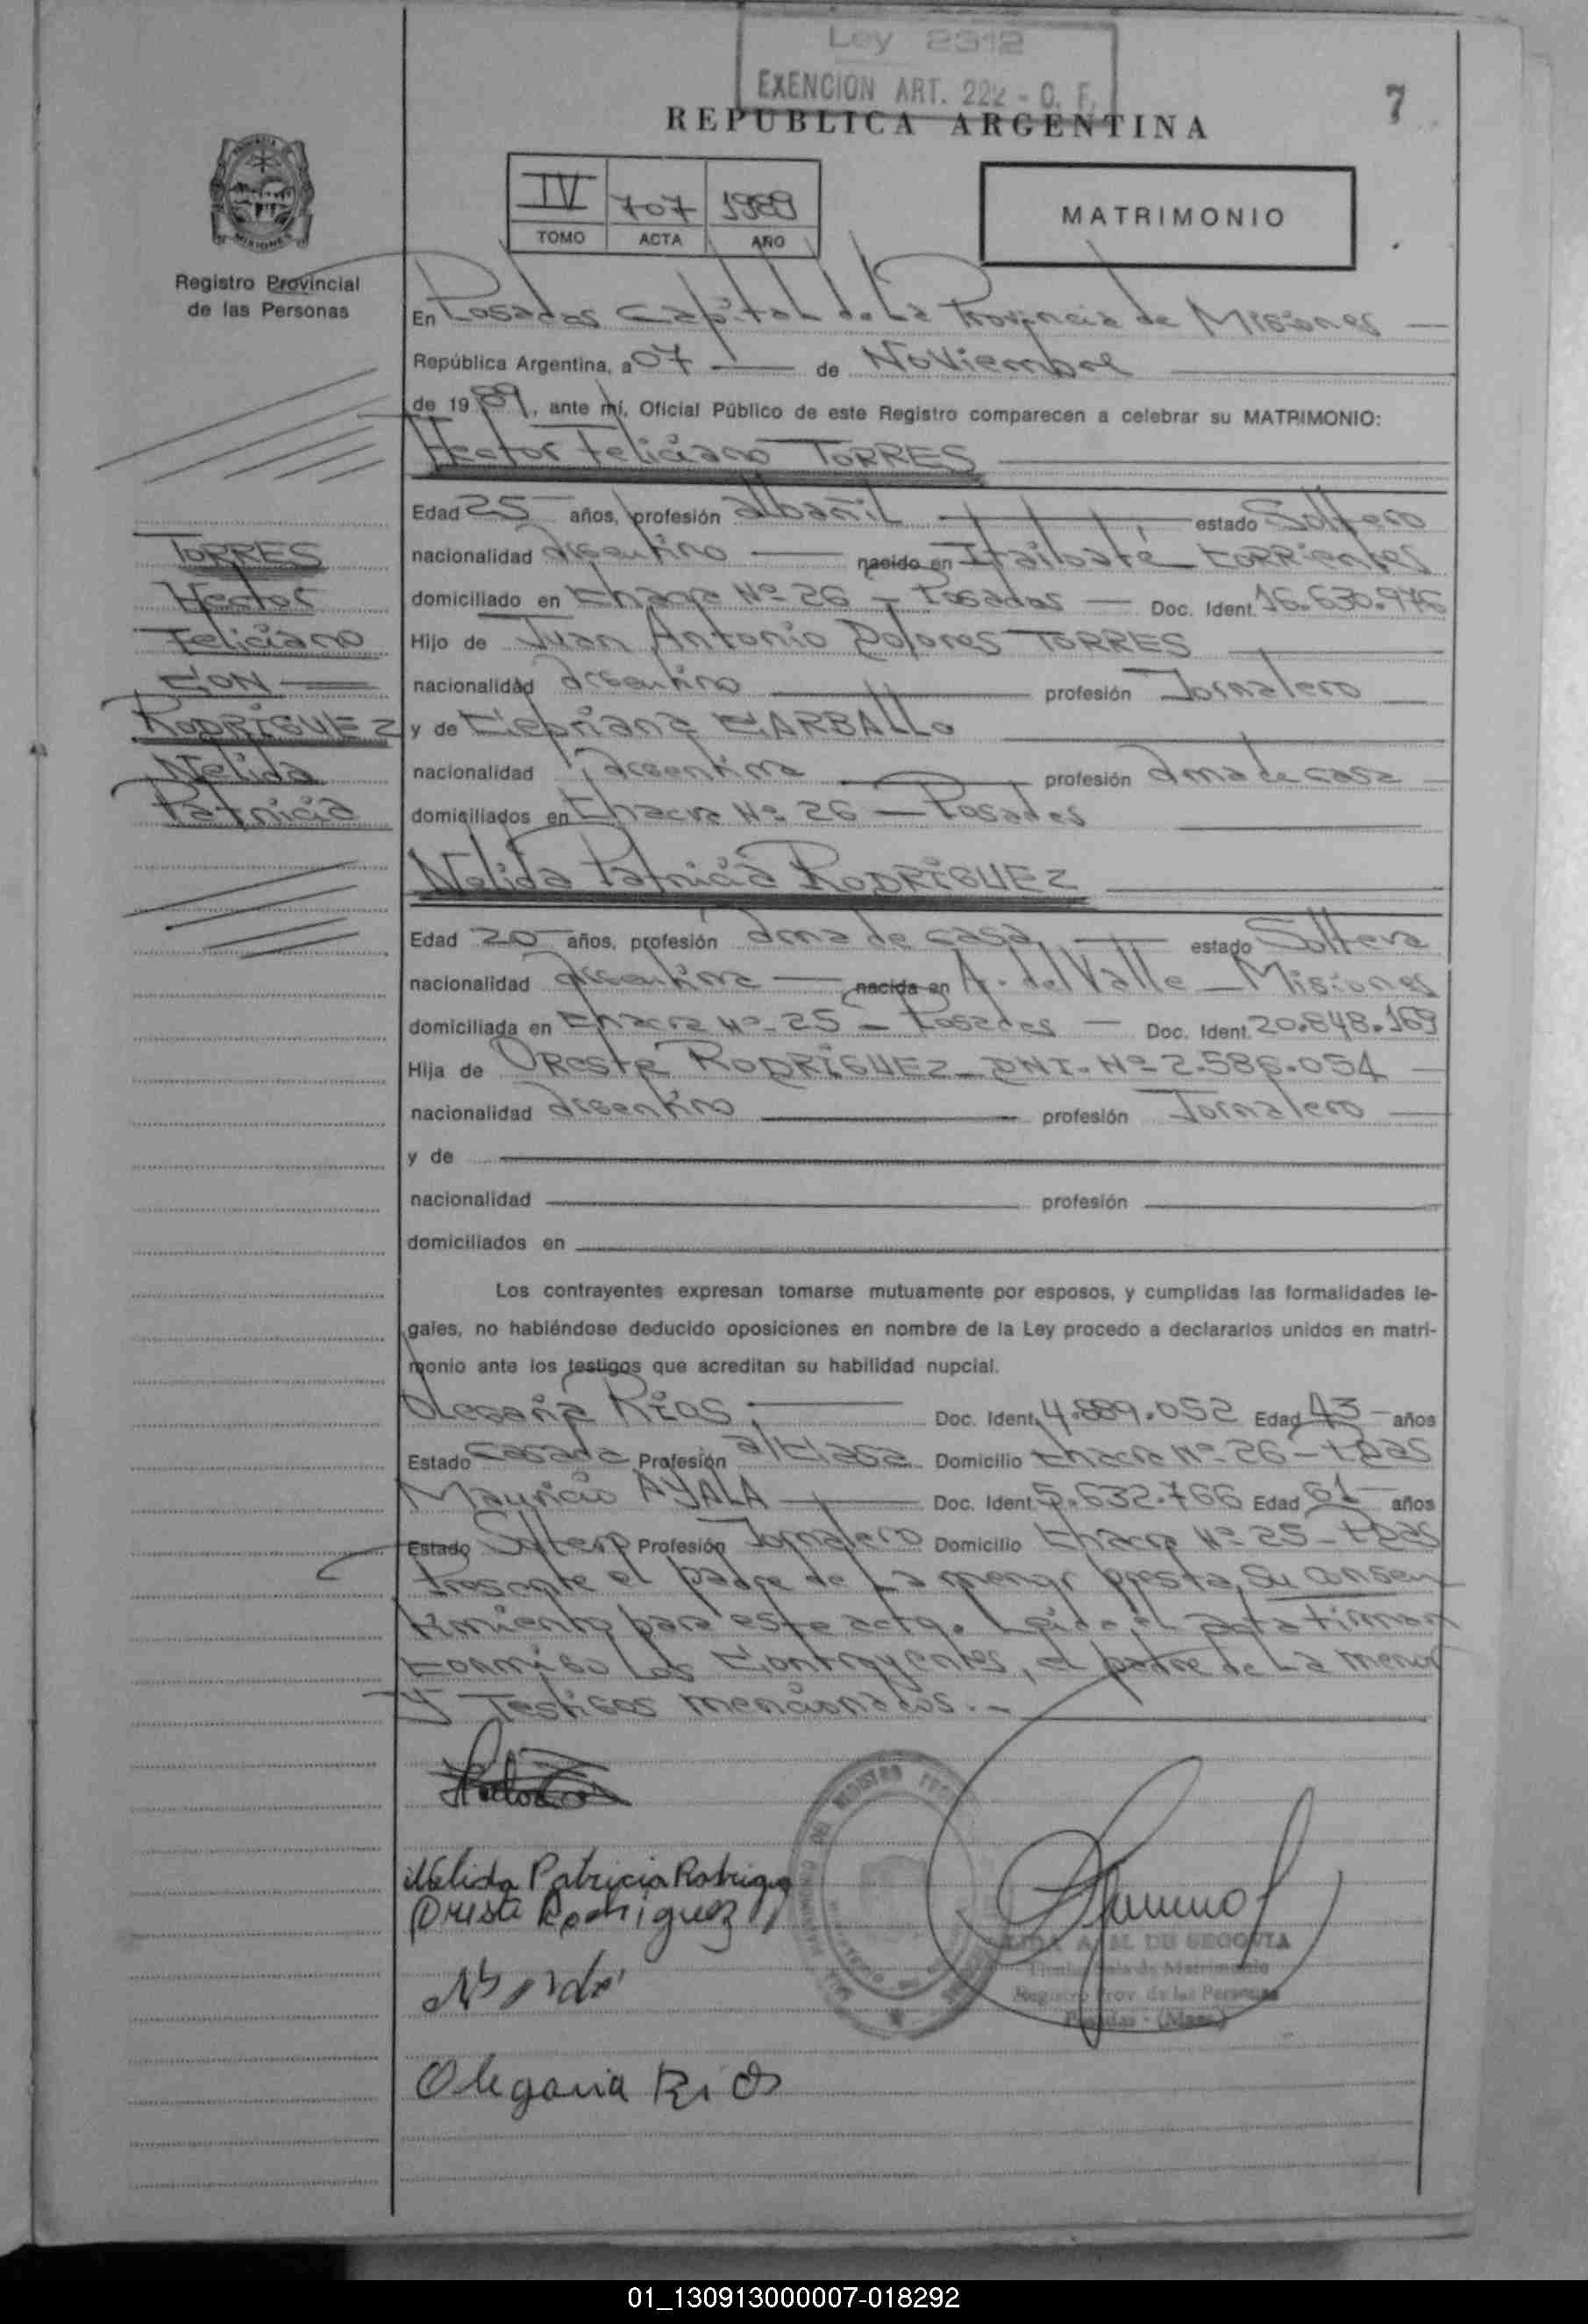 Ley 2312
EXENCION ART. 222 - C. F.
7
REPUBLICA ARGENTINA
IV 707 1989
TOMO ACTA AÑO
MATRIMONIO
MISIONES
Registro Provincial
de las Personas
En Posadas Capital de La Provincia de Misiones
República Argentina, a 07 de Noviembre
de 1989, ante mí, Oficial Público de este Registro comparecen a celebrar su MATRIMONIO:
Hector Feliciano TORRES
Edad 25 años, profesión albañil estado Soltero
nacionalidad argentino nacido en Itaibaté Corrientes
domiciliado en Chacra Nº 26 - Posadas - Doc. Ident. 16.630.976
Hijo de Juan Antonio Dolores TORRES
nacionalidad argentino profesión Jornalero
y de Cipriana CARBALLo
nacionalidad argentina profesión ama de casa
domiciliados en Chacra Nº 26 - Posadas
TORRES
Hector
Feliciano
CON
RODRIGUEZ
Nelida
Patricia
Nelida Patricia RODRIGUEZ
Edad 20 años, profesión ama de casa estado Soltera
nacionalidad argentina nacida en A. del Valle - Misiones
domiciliada en Chacra Nº 25 - Posadas - Doc. Ident. 20.848.169
Hija de Oreste RODRIGUEZ - DNI. Nº 2.586.054
nacionalidad argentino profesión Jornalero
y de
nacionalidad profesión
domiciliados en
Los contrayentes expresan tomarse mutuamente por esposos, y cumplidas las formalidades le-
gales, no habiéndose deducido oposiciones en nombre de la Ley procedo a declararlos unidos en matri-
monio ante los testigos que acreditan su habilidad nupcial.
Olegaria Rios Doc. Ident. 4.889.052 Edad 43 años
Estado Casada Profesión a/casa Domicilio Chacra Nº 26 - Pdas
Mauricio AYALA Doc. Ident. 5.632.766 Edad 61 años
Estado Soltero Profesión Jornalero Domicilio Chacra Nº 25 - Pdas
Presente el padre de La menor presta su consen
timiento para este acto. Leida el acta firman
conmigo Los Contrayentes, el padre de La menor
y Testigos mencionados.-
Nelida Patricia Rodriguez
Oreste Rodriguez
Olegaria Rios
LIDA A. M. DE SEGOVIA
Titular Sala de Matrimonio
Registro Prov. de las Personas
Posadas - (Mnes.)
01_130913000007-018292